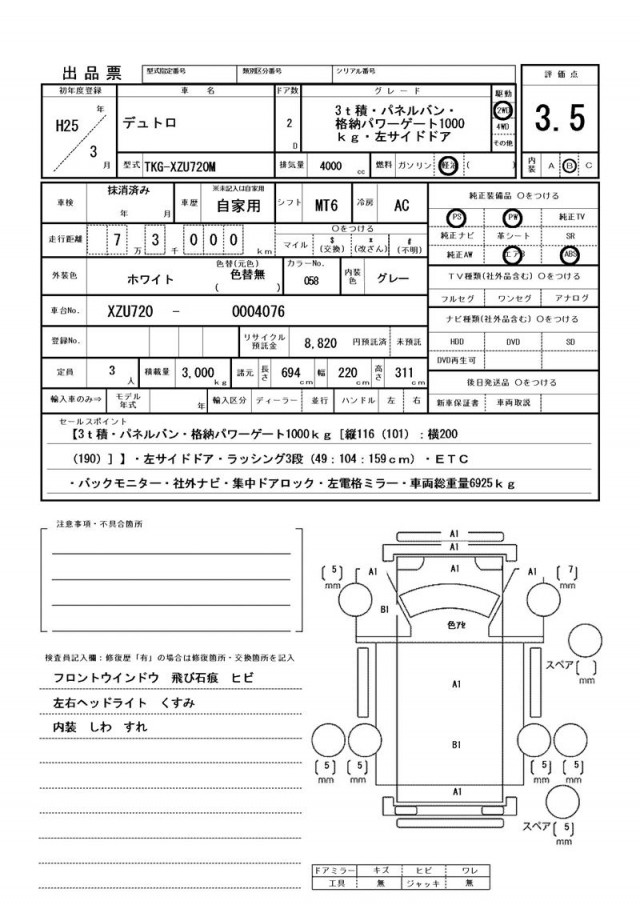 出品票 型式指定番号 類別区分番号 シリアル番号
初年度登録 車名 ドア数 グレード 駆動 評価点
H25 年 3 月
デュトロ
2 D
3t積・パネルバン・
格納パワーゲート1000
kg・左サイドドア
2WD
4WD
その他
3.5
型式 TKG-XZU720M 排気量 4000 cc 燃料 ガソリン 軽油 ( ) 内装 A B C
車検 抹消済み 年 月 車歴 ※未記入は自家用 自家用 シフト MT6 冷房 AC
純正装備品 ○をつける
走行距離 7 万 3 千 0 0 0 km
○をつける
マイル $ (交換) * (改ざん) # (不明)
PS PW 純正TV
純正ナビ 革シート SR
純正AW エアB ABS
外装色 ホワイト 色替(元色) 色替無 ( ) カラーNo. 058 内装色 グレー
TV種類(社外品含む) ○をつける
フルセグ ワンセグ アナログ
車台No. XZU720 - 0004076
ナビ種類(社外品含む) ○をつける
登録No. リサイクル預託金 8,820 円預託済 未預託
HDD DVD SD
DVD再生可
定員 3 人 積載量 3,000 kg 諸元 長さ 694 cm 幅 220 cm 高さ 311 cm
後日発送品 ○をつける
輸入車のみ⇒ モデル年式 年 輸入区分 ディーラー 並行 ハンドル 左 右
新車保証書 車両取説
セールスポイント
【3t積・パネルバン・格納パワーゲート1000kg[縦116(101):横200
(190)]】・左サイドドア・ラッシング3段(49:104:159cm)・ETC
・バックモニター・社外ナビ・集中ドアロック・左電格ミラー・車両総重量6925kg
注意事項・不具合箇所
検査員記入欄:修復歴「有」の場合は修復箇所・交換箇所を記入
フロントウインドウ 飛び石痕 ヒビ
左右ヘッドライト くすみ
内装 しわ すれ
A1
A1
[5] mm A1 A1 A1 [7] mm
B1
色アセ
スペア[ ] mm
A1
B1
[5] mm [5] mm [5] mm [5] mm
A1
スペア[5] mm
ドアミラー キズ ヒビ ワレ
工具 無 ジャッキ 無